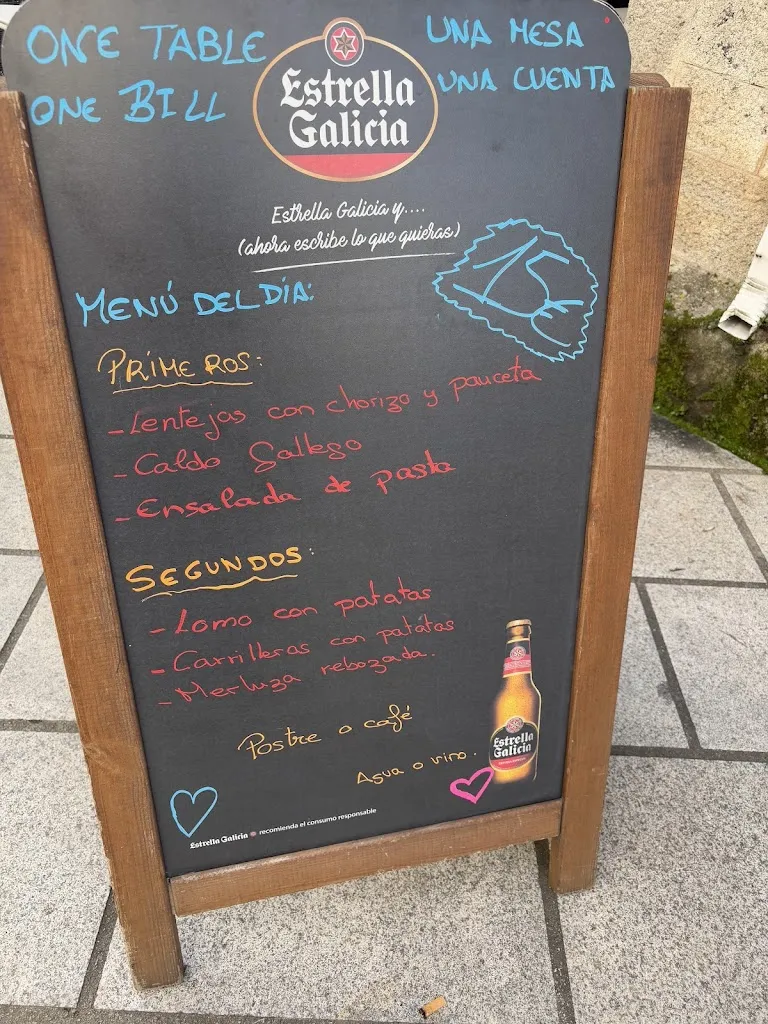 ONE TABLE
ONE BILL
UNA MESA
UNA CUENTA
Estrella
Galicia
Estrella Galicia y....
(ahora escribe lo que quieras)
MENÚ DEL DÍA:
15€
PRIMEROS:
- Lentejas con chorizo y panceta
- Caldo Gallego
- Ensalada de pasta
SEGUNDOS:
- Lomo con patatas
- Carrilleras con patatas
- Merluza rebozada.
Postre o café
Agua o vino.
Estrella
Galicia
Estrella Galicia recomienda el consumo responsable